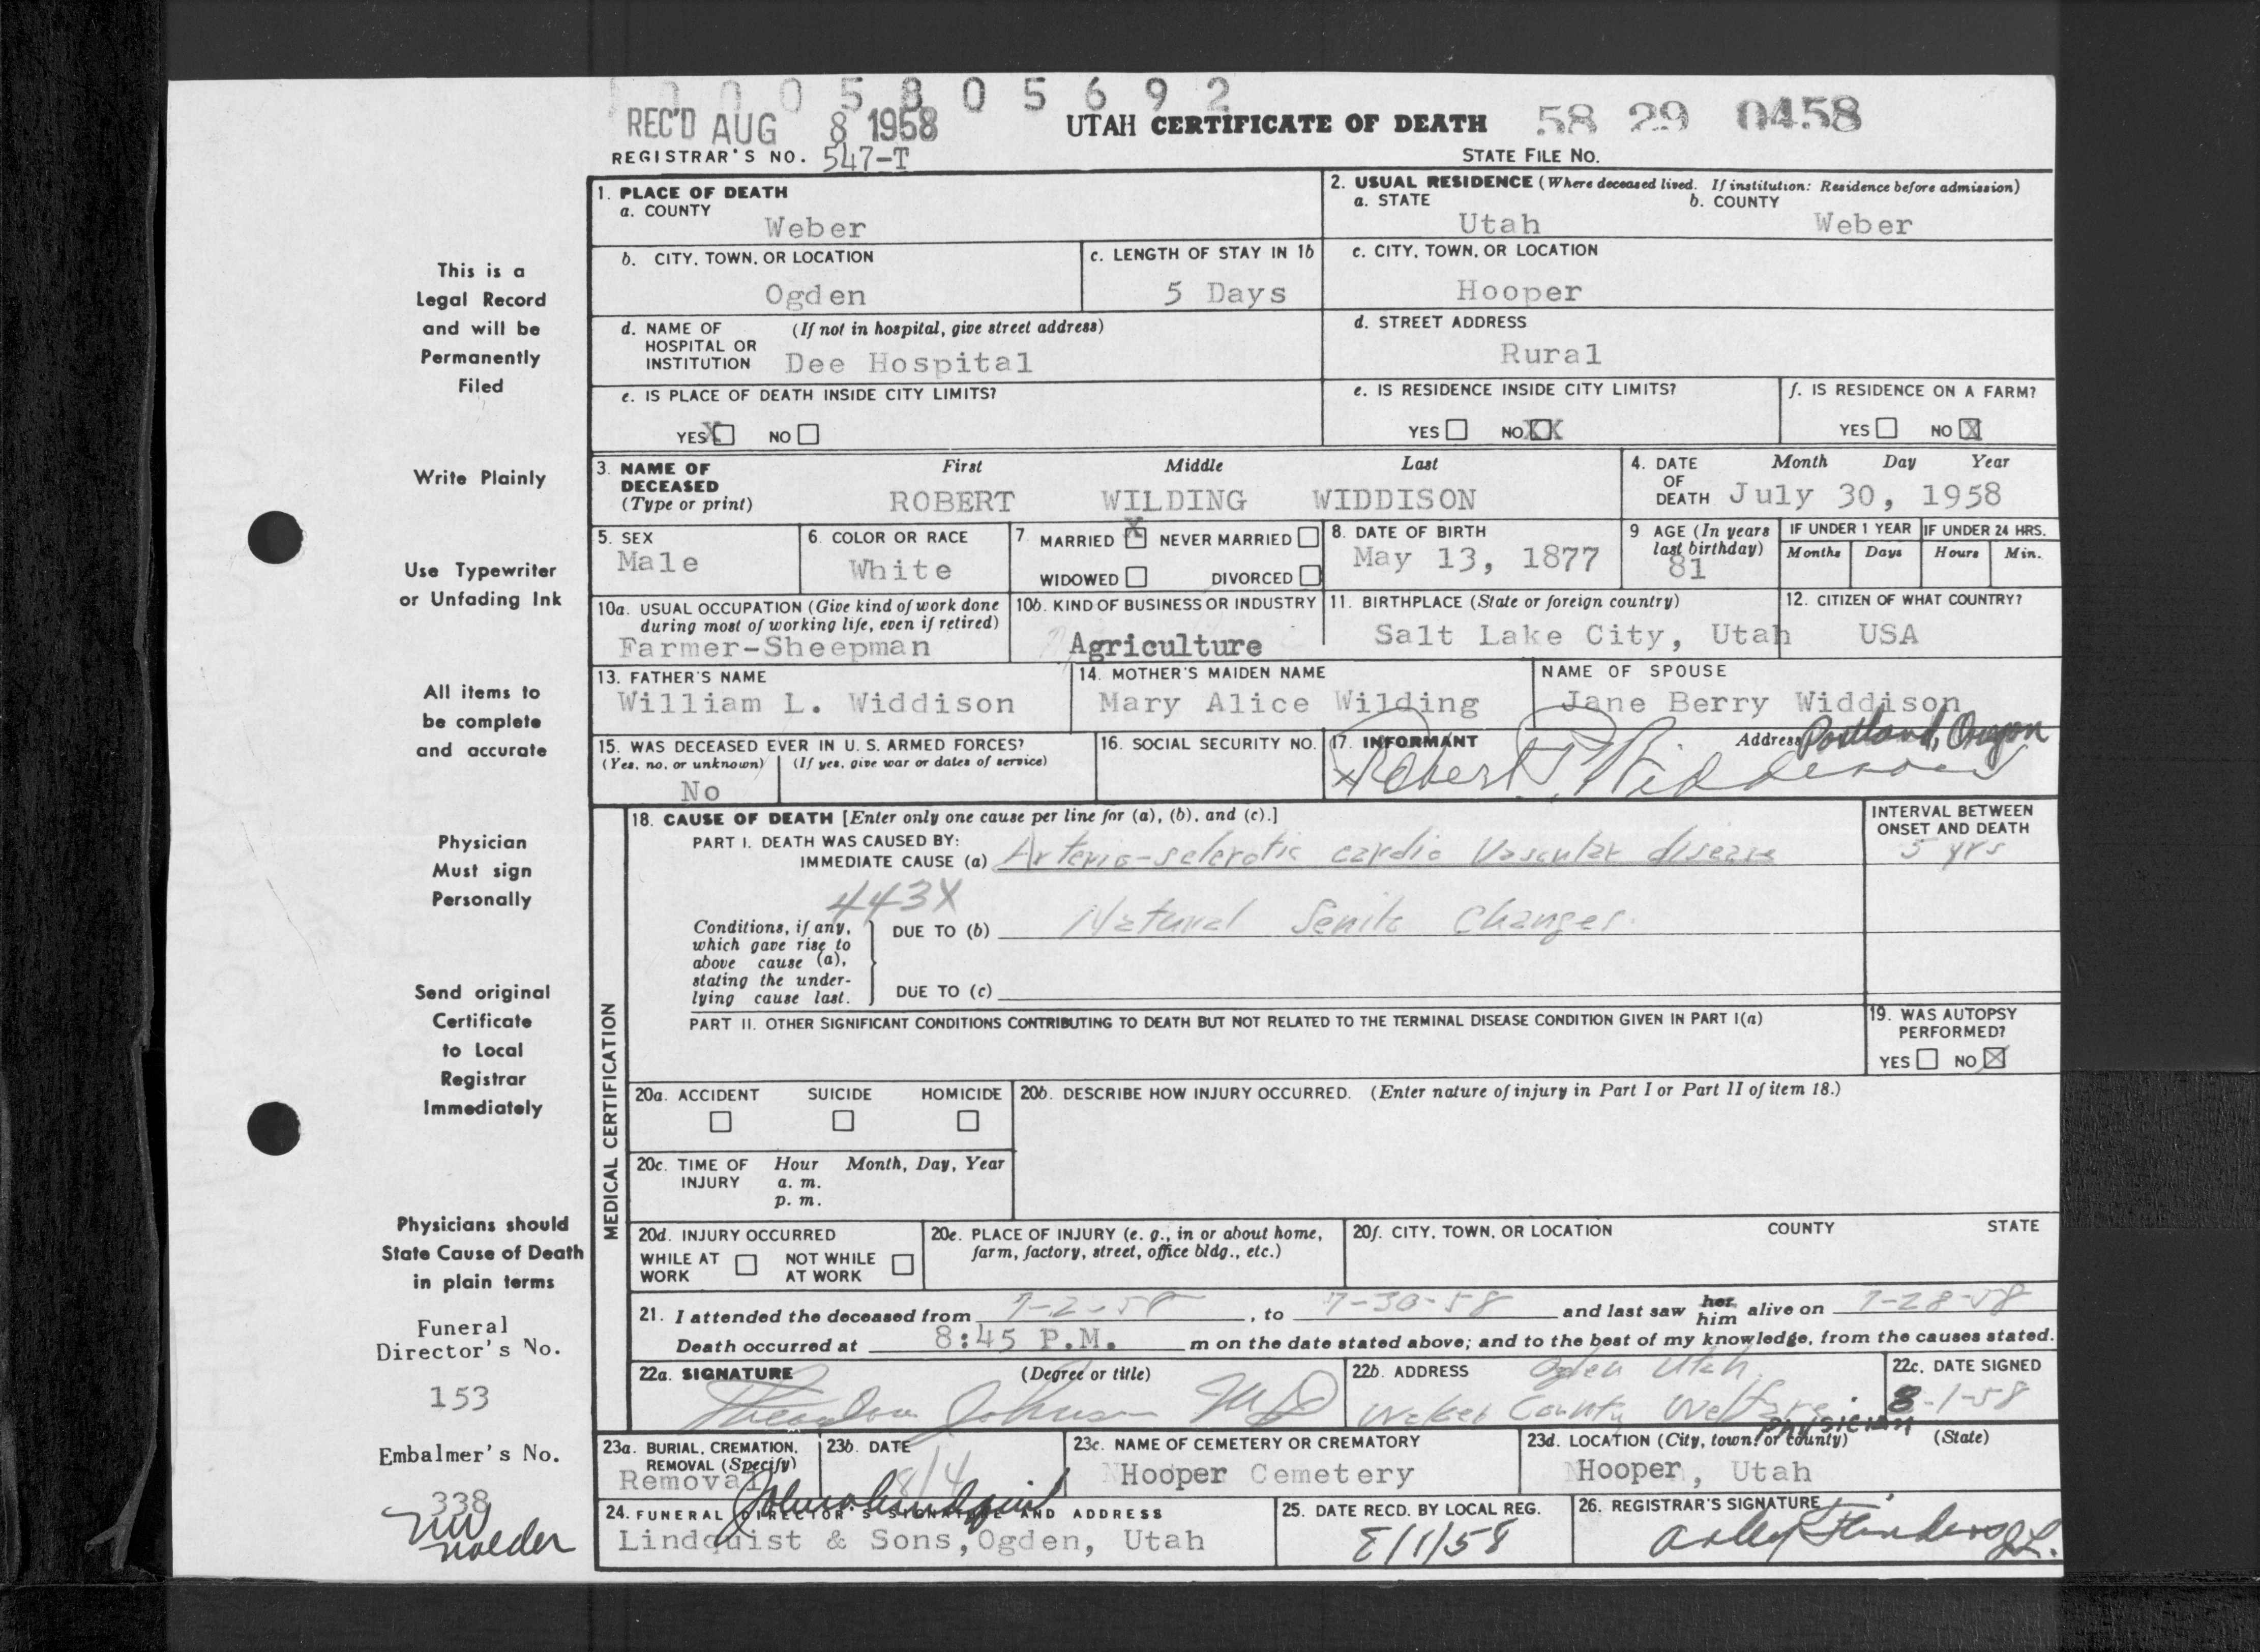 0 0 0 5 8 0 5 6 9 2
REC'D AUG 8 1958
UTAH CERTIFICATE OF DEATH 58 29 0458
REGISTRAR'S NO. 547-T
STATE FILE NO.
This is a
Legal Record
and will be
Permanently
Filed
Write Plainly
Use Typewriter
or Unfading Ink
All items to
be complete
and accurate
Physician
Must sign
Personally
Send original
Certificate
to Local
Registrar
Immediately
Physicians should
State Cause of Death
in plain terms
Funeral
Director's No.
153
Embalmer's No.
338
1. PLACE OF DEATH
a. COUNTY
Weber
2. USUAL RESIDENCE (Where deceased lived. If institution: Residence before admission)
a. STATE b. COUNTY
Utah Weber
b. CITY, TOWN, OR LOCATION
Ogden
c. LENGTH OF STAY IN 1b
5 Days
c. CITY, TOWN, OR LOCATION
Hooper
d. NAME OF (If not in hospital, give street address)
HOSPITAL OR
INSTITUTION Dee Hospital
d. STREET ADDRESS
Rural
e. IS PLACE OF DEATH INSIDE CITY LIMITS?
YES X NO
e. IS RESIDENCE INSIDE CITY LIMITS?
YES NO XX
f. IS RESIDENCE ON A FARM?
YES NO X
3. NAME OF First Middle Last
DECEASED
(Type or print) ROBERT WILDING WIDDISON
4. DATE Month Day Year
OF
DEATH July 30, 1958
5. SEX
Male
6. COLOR OR RACE
White
7. MARRIED X NEVER MARRIED
WIDOWED DIVORCED
8. DATE OF BIRTH
May 13, 1877
9 AGE (In years
last birthday)
81
IF UNDER 1 YEAR
Months Days
IF UNDER 24 HRS.
Hours Min.
10a. USUAL OCCUPATION (Give kind of work done
during most of working life, even if retired)
Farmer-Sheepman
10b. KIND OF BUSINESS OR INDUSTRY
Agriculture
11. BIRTHPLACE (State or foreign country)
Salt Lake City, Utah
12. CITIZEN OF WHAT COUNTRY?
USA
13. FATHER'S NAME
William L. Widdison
14. MOTHER'S MAIDEN NAME
Mary Alice Wilding
NAME OF SPOUSE
Jane Berry Widdison
15. WAS DECEASED EVER IN U. S. ARMED FORCES?
(Yes, no, or unknown) (If yes, give war or dates of service)
No
16. SOCIAL SECURITY NO.
17. INFORMANT Address Portland, Oregon
x Robert P. Widdison
MEDICAL CERTIFICATION
18. CAUSE OF DEATH [Enter only one cause per line for (a), (b), and (c).]
PART I. DEATH WAS CAUSED BY:
IMMEDIATE CAUSE (a) Arterio-sclerotic cardio Vascular disease
INTERVAL BETWEEN
ONSET AND DEATH
5 yrs
443X
Conditions, if any,
which gave rise to
above cause (a),
stating the under-
lying cause last.
DUE TO (b) Natural Senile Changes
DUE TO (c)
PART II. OTHER SIGNIFICANT CONDITIONS CONTRIBUTING TO DEATH BUT NOT RELATED TO THE TERMINAL DISEASE CONDITION GIVEN IN PART I(a)
19. WAS AUTOPSY
PERFORMED?
YES NO X
20a. ACCIDENT SUICIDE HOMICIDE
20b. DESCRIBE HOW INJURY OCCURRED. (Enter nature of injury in Part I or Part II of item 18.)
20c. TIME OF Hour Month, Day, Year
INJURY a. m.
p. m.
20d. INJURY OCCURRED
WHILE AT NOT WHILE
WORK AT WORK
20e. PLACE OF INJURY (e. g., in or about home,
farm, factory, street, office bldg., etc.)
20f. CITY, TOWN, OR LOCATION COUNTY STATE
21. I attended the deceased from 7-2-58, to 7-30-58 and last saw her him alive on 7-28-58
Death occurred at 8:45 P.M. m on the date stated above; and to the best of my knowledge, from the causes stated.
22a. SIGNATURE (Degree or title)
Theodore Johnson MD
22b. ADDRESS Ogden Utah
Weber County Welfare Physician
22c. DATE SIGNED
8-1-58
23a. BURIAL, CREMATION,
REMOVAL (Specify)
Removal
23b. DATE
8/4
23c. NAME OF CEMETERY OR CREMATORY
Hooper Cemetery
23d. LOCATION (City, town, or county) (State)
Hooper, Utah
24. FUNERAL DIRECTOR'S SIGNATURE AND ADDRESS
Lindquist & Sons, Ogden, Utah
25. DATE RECD. BY LOCAL REG.
8/1/58
26. REGISTRAR'S SIGNATURE